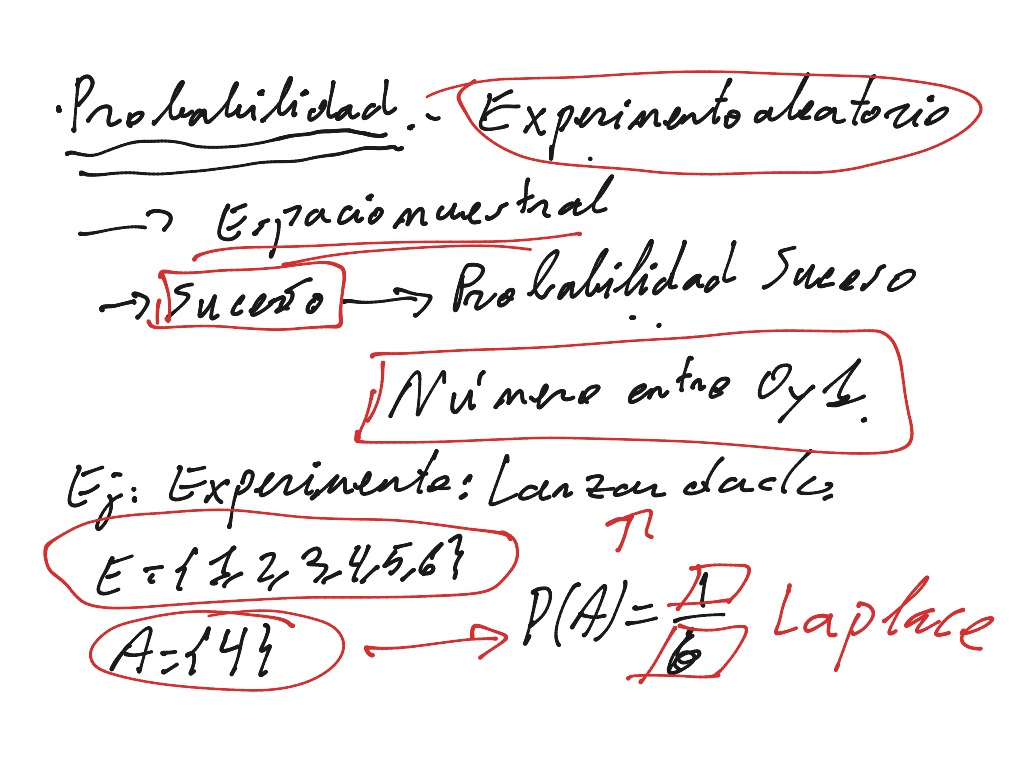 · Probabilidad.- Experimento aleatorio
→ Espacio muestral
→ Suceso → Probabilidad Suceso
Número entre 0 y 1.
Ej: Experimento: Lanzar dado.
E = {1, 2, 3, 4, 5, 6}
A = {4} → P(A) = 1/6 Laplace